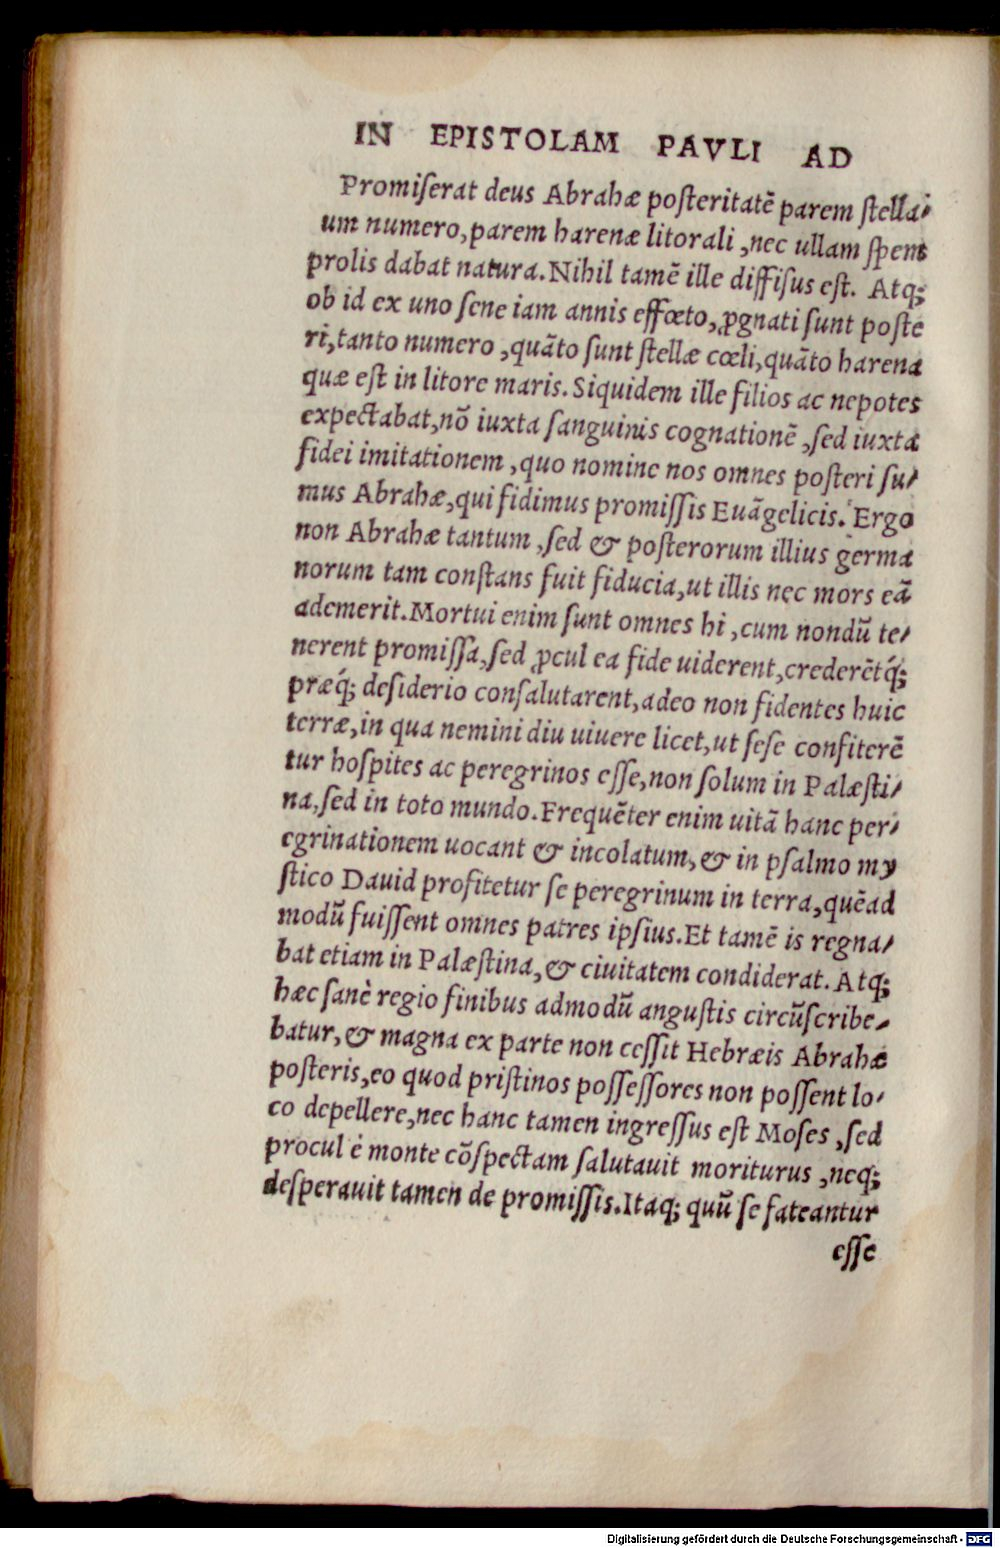 IN EPISTOLAM PAVLI AD
Promiſerat deus Abrahæ poſteritatẽ parem ſtella/
um numero, parem harenæ litorali, nec ullam ſpem
prolis dabat natura. Nihil tamẽ ille diffiſus eſt. Atq;
ob id ex uno ſene iam annis effœto, ꝓgnati ſunt poſte
ri, tanto numero, quãto ſunt ſtellæ cœli, quãto harena
quæ eſt in litore maris. Siquidem ille filios ac nepotes
expectabat, nõ iuxta ſanguinis cognationẽ, ſed iuxta
fidei imitationem, quo nomine nos omnes poſteri ſu/
mus Abrahæ, qui fidimus promiſſis Euãgelicis. Ergo
non Abrahæ tantum, ſed & poſterorum illius germa
norum tam conſtans fuit fiducia, ut illis nec mors eã
ademerit. Mortui enim ſunt omnes hi, cum nondũ te/
nerent promiſſa, ſed ꝓcul ea fide uiderent, crederẽtq́;
præq́; deſiderio conſalutarent, adeo non fidentes huic
terræ, in qua nemini diu uiuere licet, ut ſeſe confiterẽ
tur hoſpites ac peregrinos eſſe, non ſolum in Palæſti/
na, ſed in toto mundo. Frequẽter enim uitã hanc per/
egrinationem uocant & incolatum, & in pſalmo my
ſtico Dauid profitetur ſe peregrinum in terra, quẽad
modũ fuiſſent omnes patres ipſius. Et tamẽ is regna/
bat etiam in Palæſtina, & ciuitatem condiderat. Atq;
hæc ſanè regio finibus admodũ anguſtis circũſcribe/
batur, & magna ex parte non ceſſit Hebræis Abrahæ
poſteris, eo quod priſtinos poſſeſſores non poſſent lo/
co depellere, nec hanc tamen ingreſſus eſt Moſes, ſed
procul è monte cõſpectam ſalutauit moriturus, neq;
deſperauit tamen de promiſſis. Itaq; quũ ſe fateantur
eſſe
Digitalisierung gefördert durch die Deutsche Forschungsgemeinschaft - DFG